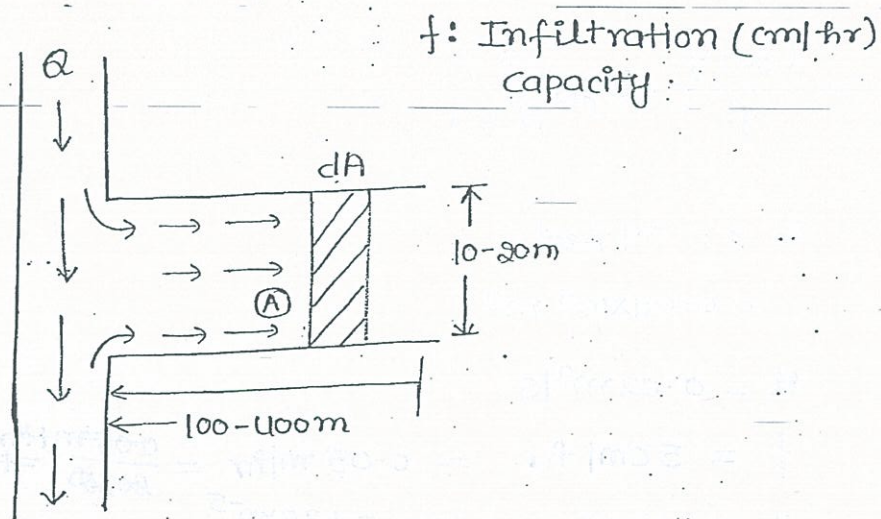 f: Infiltration (cm/hr)
capacity :
Q
dA
10-20m
A
100-400m